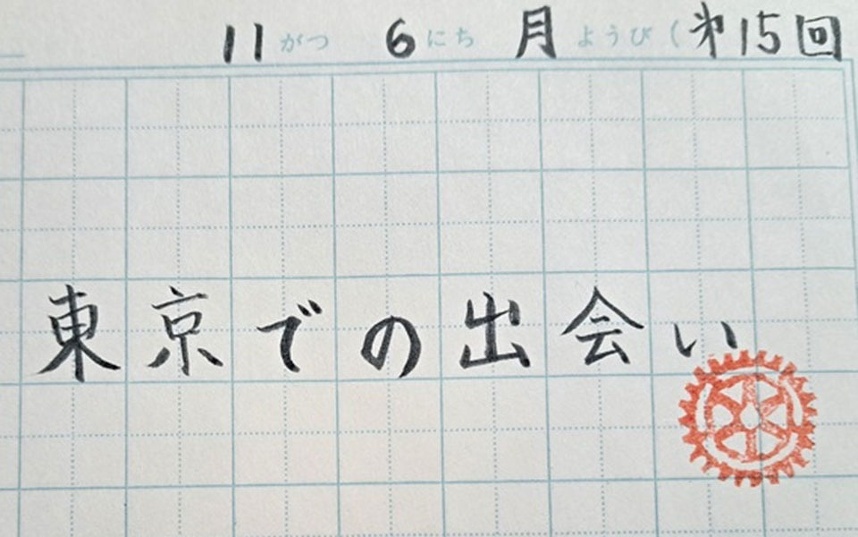 11がつ 6にち 月ようび(第15回
東京での出会い